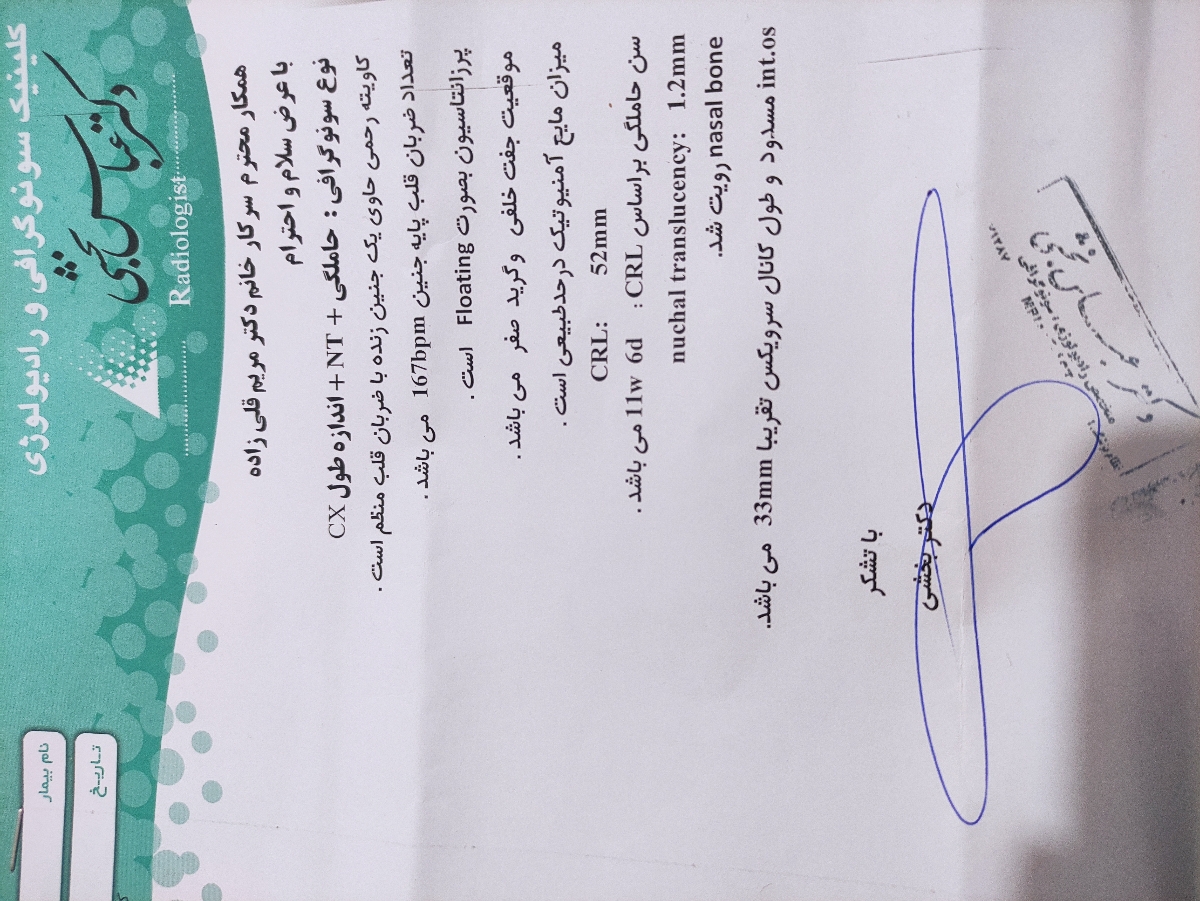 کلینیک سونوگرافی و رادیولوژی
دکتر عباس بخشی
Radiologist
نام بیمار
تـاریـخ
همکار محترم سرکار خانم دکتر مریم قلی زاده
با عرض سلام و احترام
نوع سونوگرافی : حاملگی + NT + اندازه طول CX
کاویته رحمی حاوی یک جنین زنده با ضربان قلب منظم است .
تعداد ضربان قلب پایه جنین 167bpm می باشد .
پرزانتاسیون بصورت Floating است .
موقعیت جفت خلفی وگرید صفر می باشد .
میزان مایع آمنیوتیک درحدطبیعی است .
CRL: 52mm
سن حاملگی براساس CRL : 11w 6d می باشد .
nuchal translucency: 1.2mm
nasal bone رویت شد.
int.os مسدود و طول کانال سرویکس تقریبا 33mm می باشد.
با تشکر
دکتر بخشی
دکتر عباس بخشی
متخصص رادیولوژی، سونوگرافی